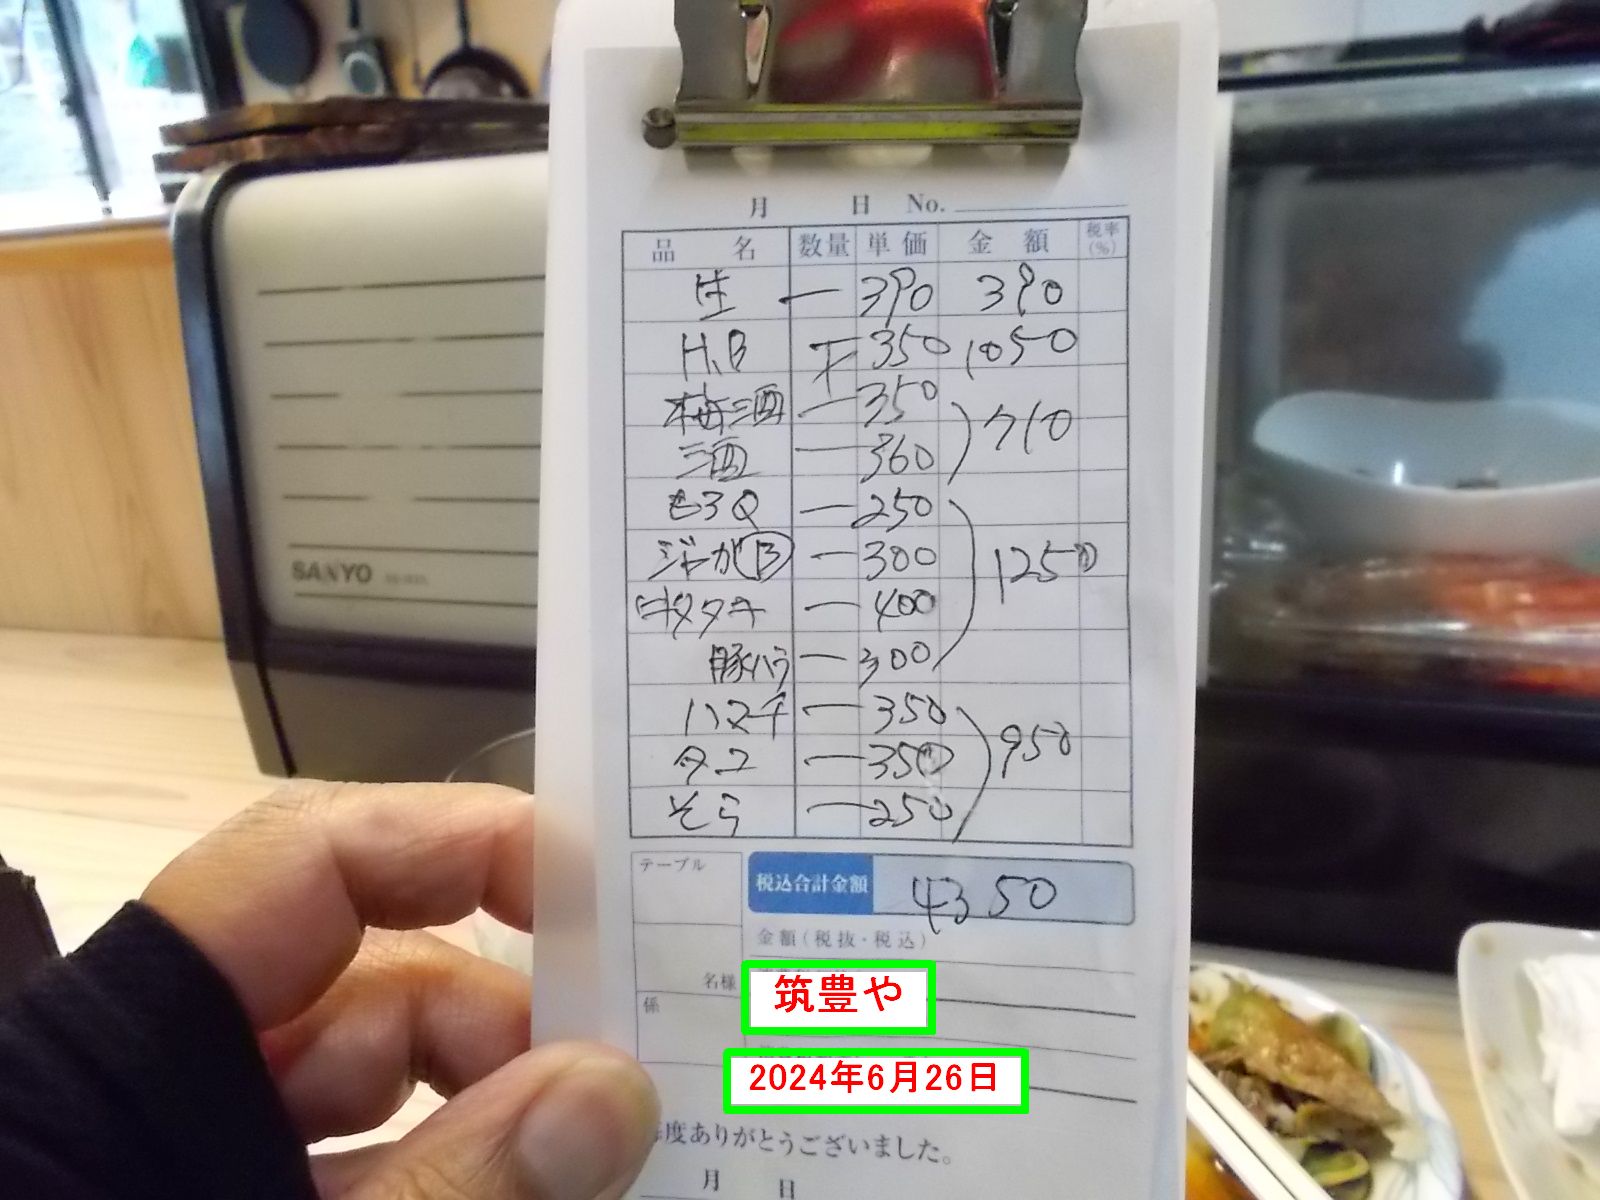 月 日 No.
品名 数量 単価 金額 税率(%)
生 一 390 390
H.B 下 350 1050
梅酒 一 350
酒 一 360 710
もろQ 一 250
ジャガB 一 300
タタキ 一 400 1250
豚バラ 一 300
ハマチ 一 350
タコ 一 350 950
そら 一 250
テーブル
税込合計金額 4350
金額(税抜・税込)
名様
筑豊や
係
2024年6月26日
毎度ありがとうございました。
月 日
SANYO